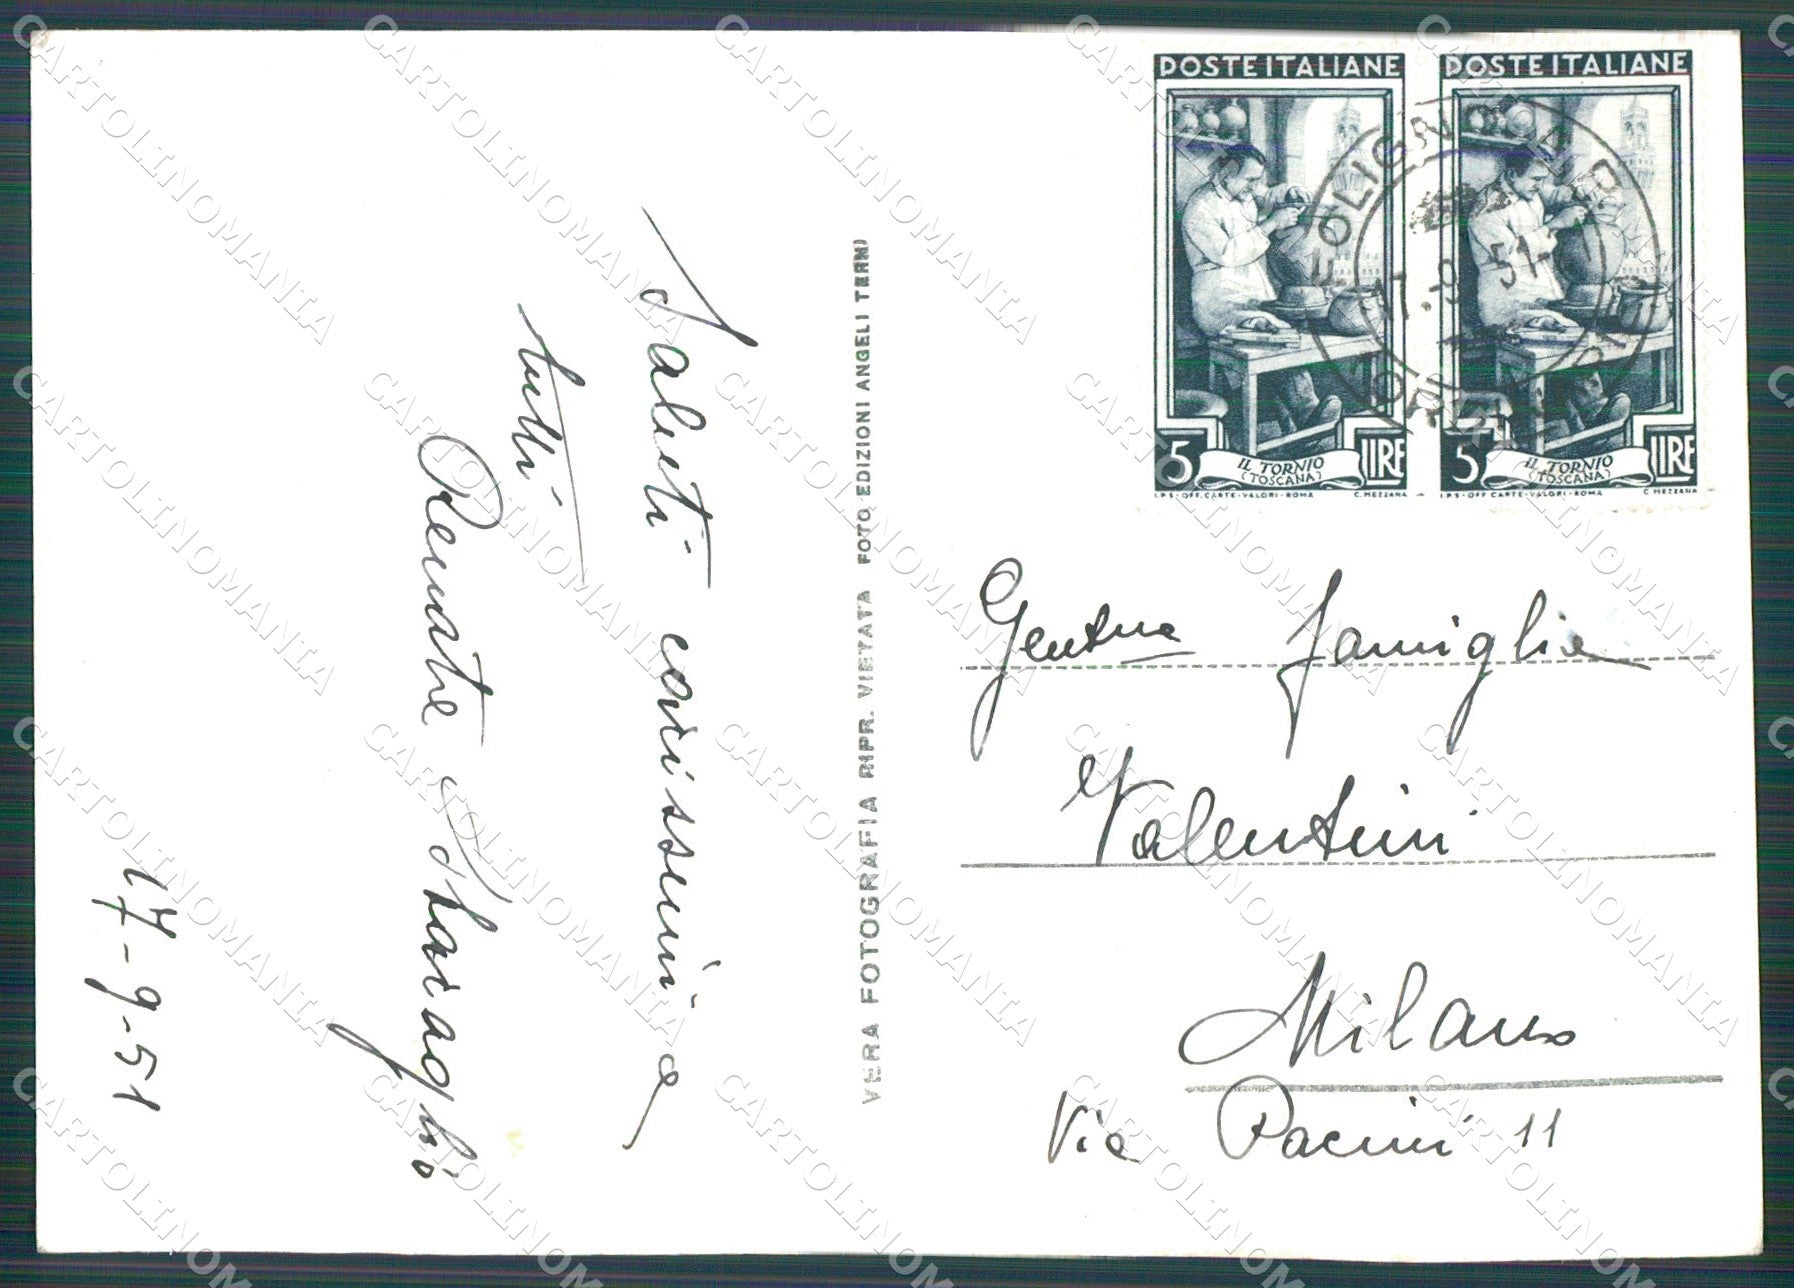 Saluti carissimi a
tutti
Renata
17-9-51
VERA FOTOGRAFIA RIPR. VIETATA FOTO EDIZIONI ANGELI TERNI
POSTE ITALIANE
5 LIRE
IL TORNIO
(TOSCANA)
I.P.S-OFF. CARTE-VALORI-ROMA C. MEZZANA
POSTE ITALIANE
5 LIRE
IL TORNIO
(TOSCANA)
I.P.S-OFF. CARTE-VALORI-ROMA C. MEZZANA
FOLIGNO
17.-9.51-
Famiglia
Valentini
Milano
Via Pacini 11
CARTOLINOMANIA